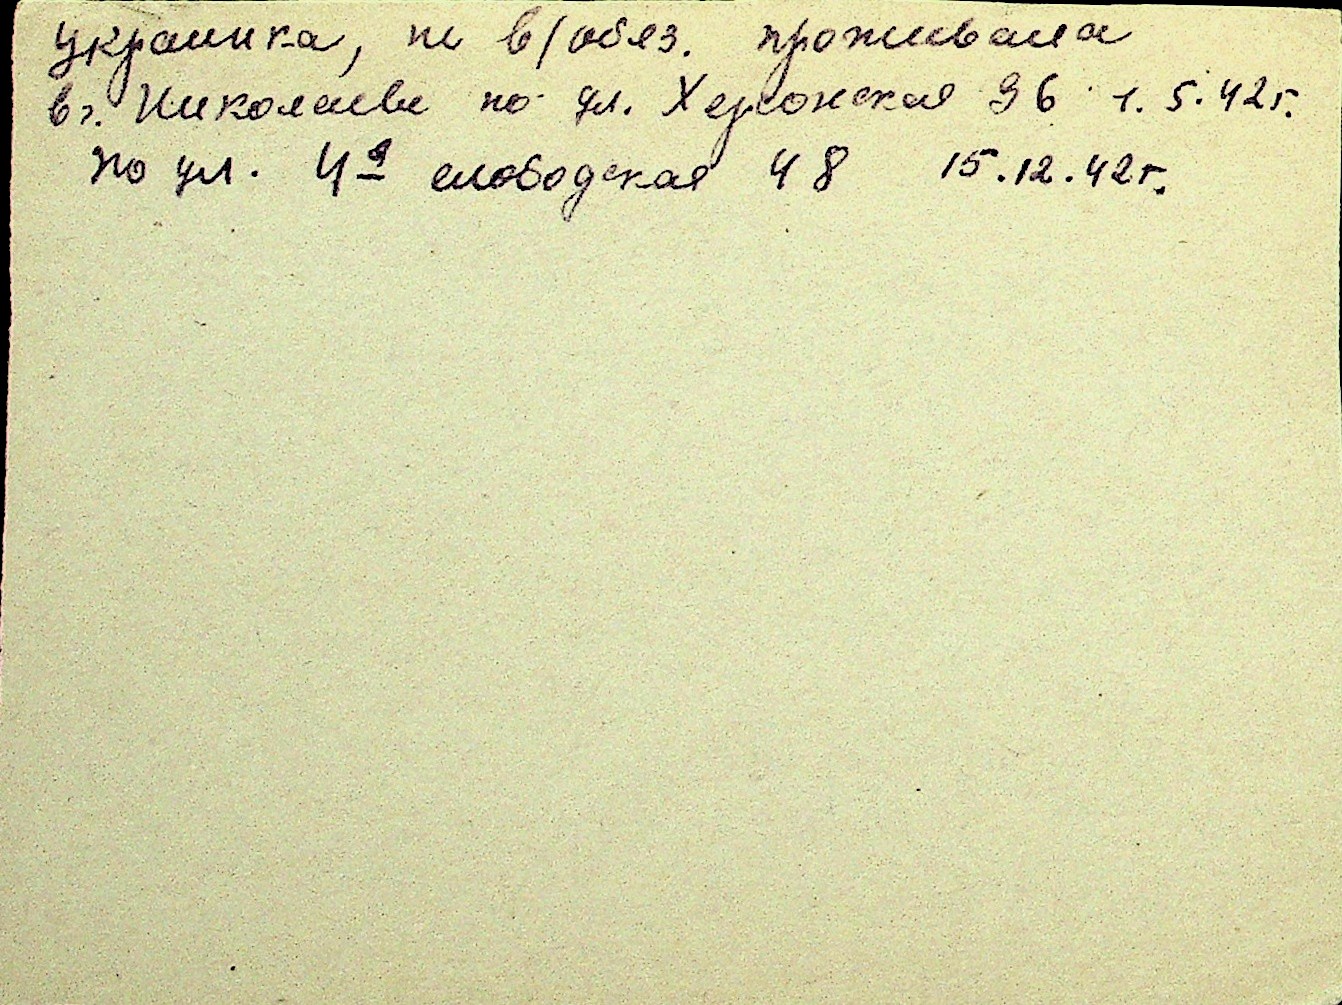 украинка, не в/обяз. проживала
в г. Николаеве по ул. Херсонская 96 1.5.42г.
по ул. 4я слободская 48 15.12.42г.